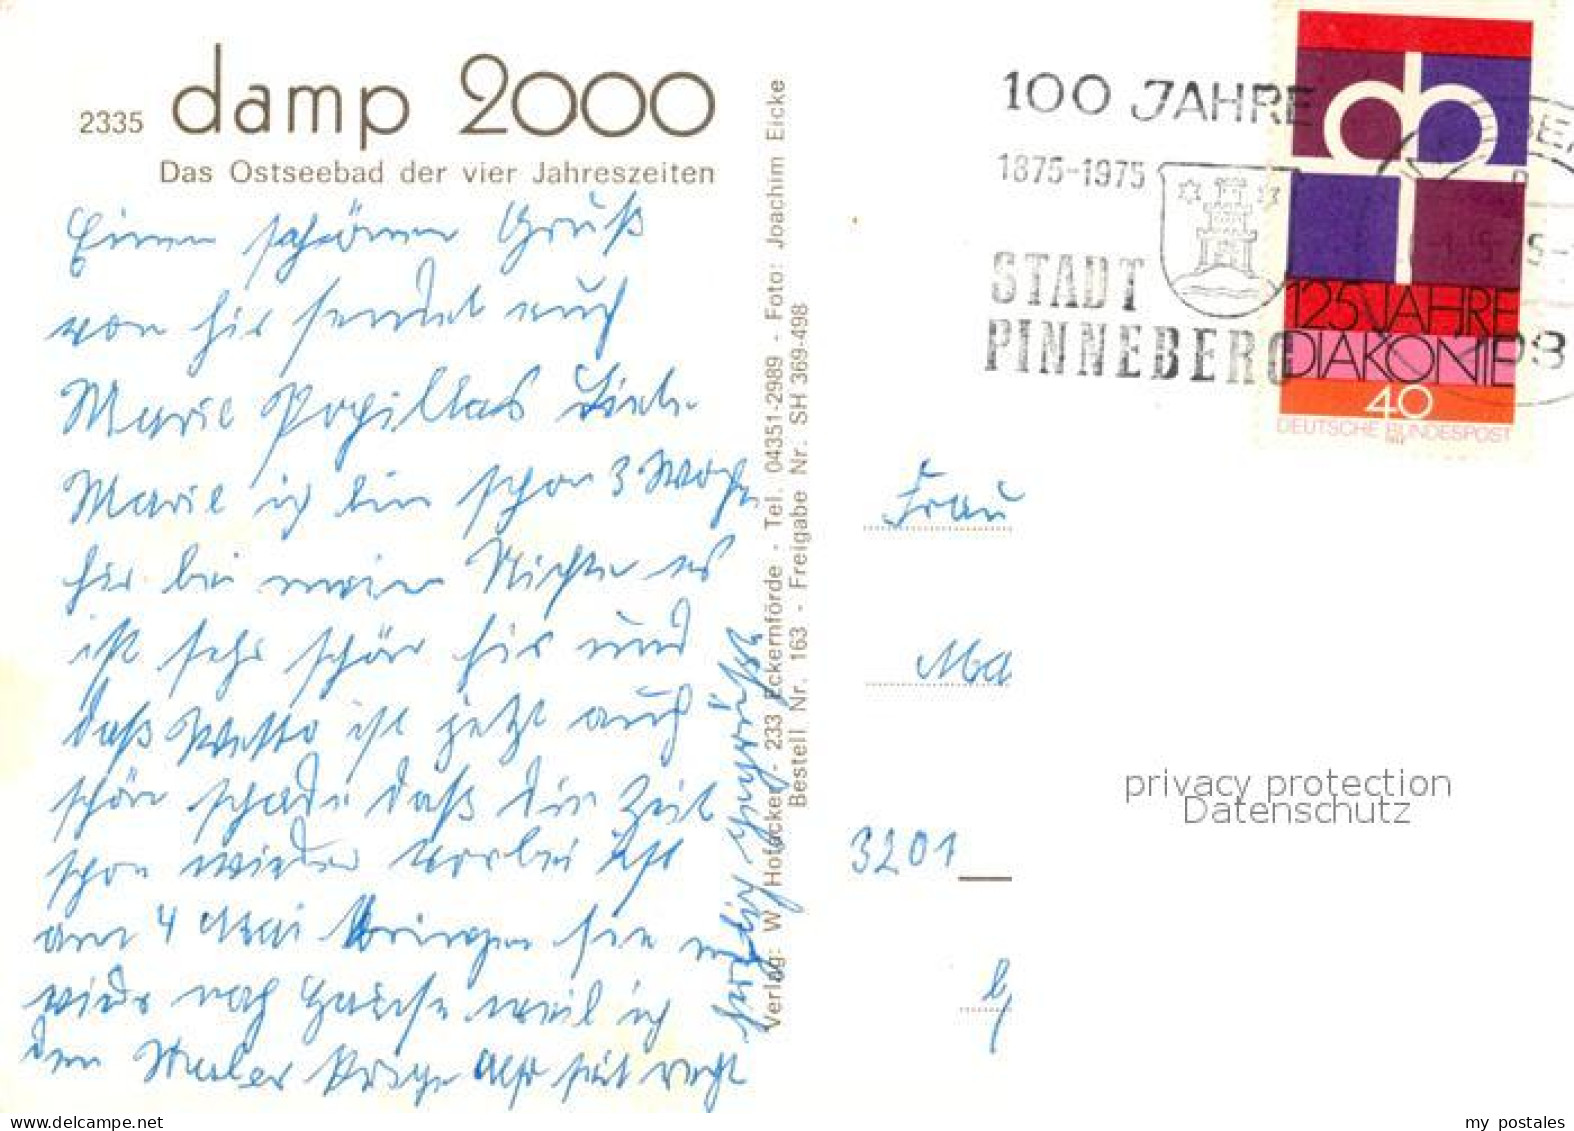 2335 damp 2000
Das Ostseebad der vier Jahreszeiten
Einen schönen Gruß
von hir sendet euch
Marie Lieb
Marie ich bin schon 3 Woche
hir bei meine Nichte es
ist sehr schön hir und
daß Wetter ist jetzt auch
schön schade daß die Zeit
schon wieder vorbei ist
am 4 Mai bringen sie m
wieder nach Hause weil ich
den Maler kriege Also seit recht
herzlich gegrüßt
Verlag: W. Hofacker - 233 Eckernförde - Tel. 04351-2989 - Foto: Joachim Eicke
Bestell. Nr. 163 - Freigabe Nr. SH 369-498
100 JAHRE
1875-1975
STADT
PINNEBERG
125 JAHRE
DIAKONIE
40
DEUTSCHE BUNDESPOST
Frau
Ma
3201
privacy protection
Datenschutz
www.delcampe.net
my_postales